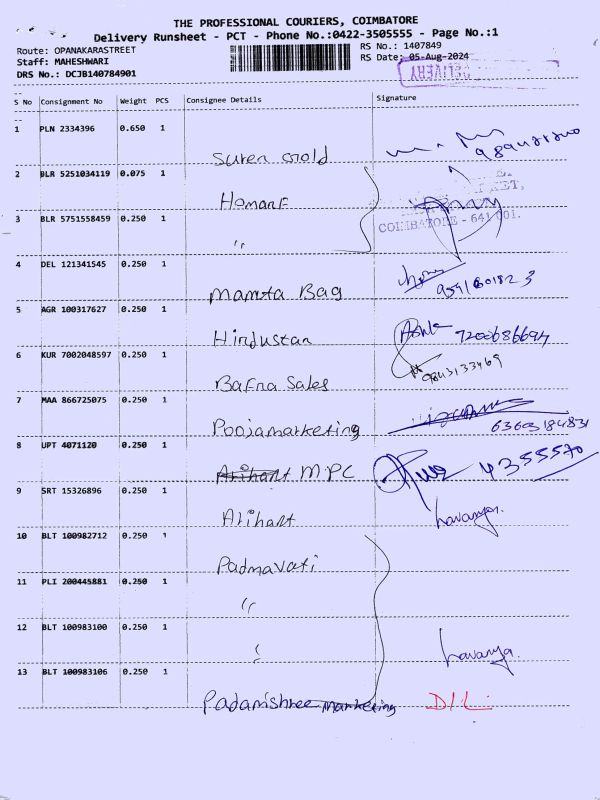 THE PROFESSIONAL COURIERS, COIMBATORE
Delivery Runsheet - PCT - Phone No.:0422-3505555 - Page No.:1
Route: OPANAKARASTREET RS No.: 1407849
Staff: MAHESHWARI RS Date: 05-Aug-2024
DRS No.: DCJB140784901 DELIVERY
S No Consignment No Weight PCS Consignee Details Signature
1 PLN 2334396 0.650 1
Suren Gold
2 BLR 5251034119 0.075 1
Homanf
3 BLR 5751558459 0.250 1
COIMBATORE - 641 001.
"
4 DEL 121341545 0.250 1
Mamta Bag
5 AGR 100317627 0.250 1
Hindustan 7200686694
6 KUR 7002048597 0.250 1
Bafna Sales 9843133469
7 MAA 866725075 0.250 1
Poojamarketing
8 UPT 4071120 0.250 1
Arihant M.P.C 4355570
9 SRT 15326896 0.250 1
Arihant Lavanya.
10 BLT 100982712 0.250 1
Padmavati
11 PLI 200445881 0.250 1
"
12 BLT 100983100 0.250 1
" Lavanya.
13 BLT 100983106 0.250 1
Padamshree marketing D/L